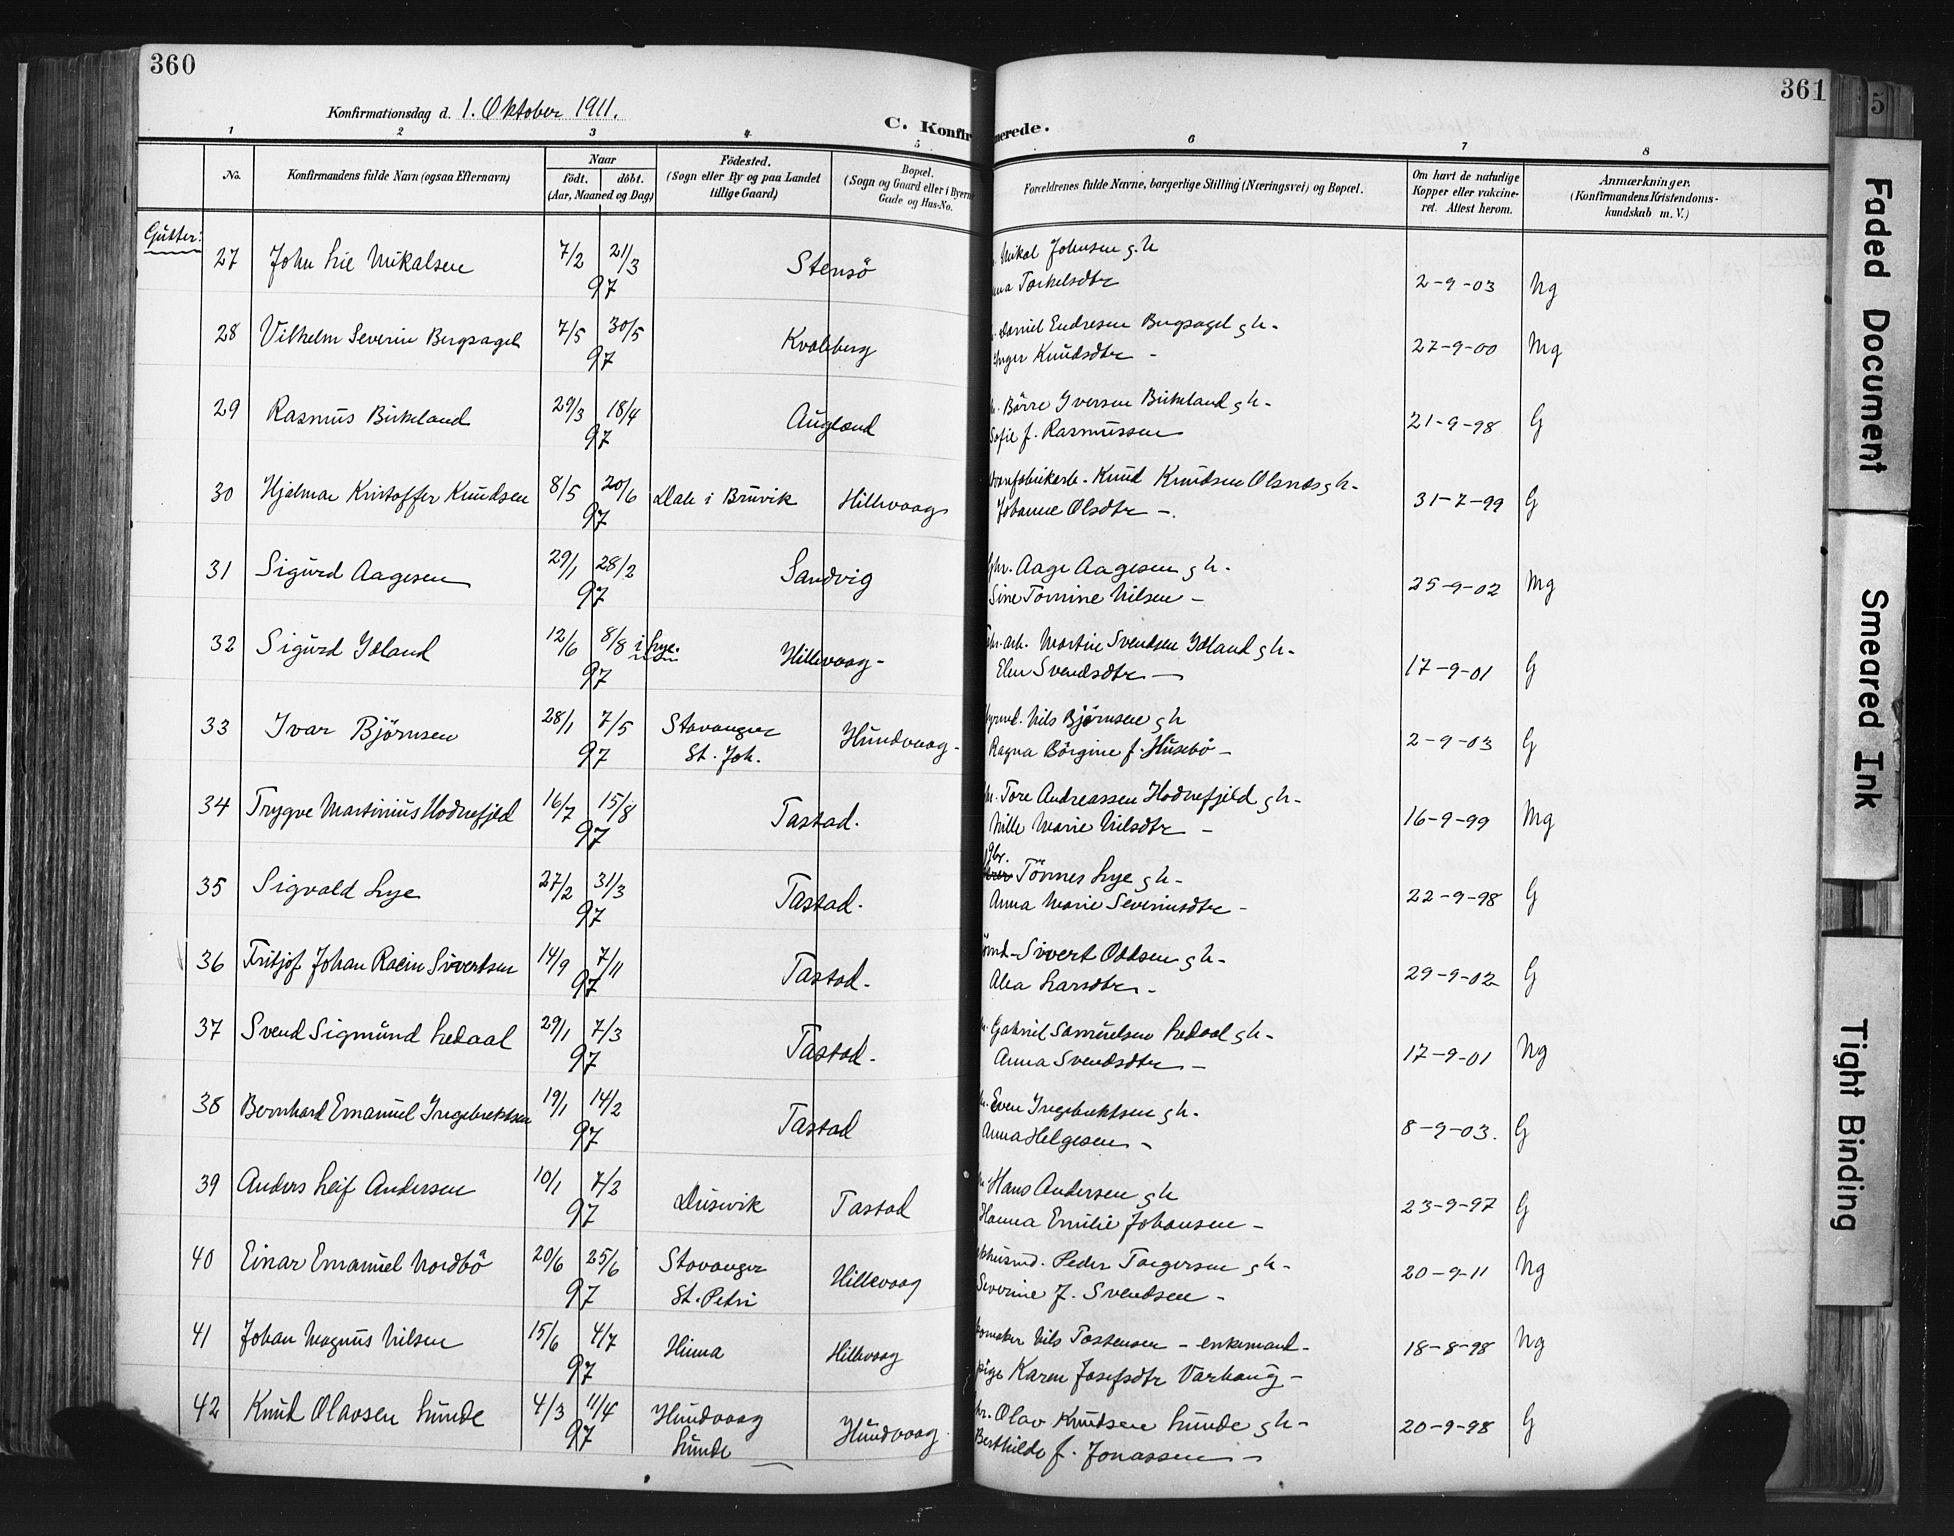 360
361
5
Konfirmationsdag d. 1. Oktober 1911.
C. Konfirmerede.
1 2 3 4 5 6 7 8
No.
Konfirmandens fulde Navn (ogsaa Efternavn)
Naar
födt. döbt.
(Aar, Maaned og Dag)
Födested.
(Sogn eller By og paa Landet
tillige Gaard)
Bopæl.
(Sogn og Gaard eller i Byerne
Gade og Hus-No.
Forældrenes fulde Navne, borgerlige Stilling (Næringsvei) og Bopæl.
Om havt de naturlige
Kopper eller vakcine-
ret. Attest herom.
Anmærkninger.
(Konfirmandens Kristendoms-
kundskab m. V.)
Gutter:
27 John Lie Mikalsen 7/2 21/3 97 Stensö
Mikal Johnsen g h
Torkelsdtr 2-9-03 Ng
28 Vilhelm Severin Bergsagel 7/5 30/5 97 Kvaleberg
Daniel Endresen Bergsagel g h-
Inger Knudsdtr - 27-9-00 Mg
29 Rasmus Birkeland 29/3 18/4 97 Augland
Börre Iversen Birkeland g h-
Sofie f. Rasmussen 21-9-98 G
30 Hjalmar Kristoffer Knudsen 8/5 20/6 97 Dale i Bruvik Hillevaag
Knud Knudsen Olsnes g h-
Johanne Olsdtr -. 31-7-99 G
31 Sigurd Aagesen 29/1 28/2 97 Sandvig
Aage Aagesen g h-
Sine Tomine Nilsen - 25-9-02 Mg
32 Sigurd Igland 12/6 8/8 i Lye. 97 Hillevaag-
Martin Svendsen Igland g h-
Elen Svendsdtr - 17-9-01 G
33 Ivar Björnsen 28/1 7/5 97 Stavanger
St. Joh. Hundvaag-
Nils Björnsen g h
Ragna Börgine f. Husebö - 2-9-03 G
34 Trygve Martinius Hodnefjeld 16/7 15/8 97 Tastad.
Tore Andreassen Hodnefjeld g h-
Nille Marie Nilsdtr - 16-9-99 Mg
35 Sigvald Lye 27/2 31/3 97 Tastad.
gbr.
Tönnes Lye g h-
Anna Marie Severinsdtr - 22-9-98 G
36 Fritjof Johan Racin Sivertsen 14/9 7/11 97 Tastad.
Sivert Oddsen g h-
Alea Larsdtr - 29-9-02 G
37 Svend Sigmund Ledaal 29/1 7/3 97 Tastad.
Gabriel Samuelsen Ledaal g h-
Anna Svendsdtr - 17-9-01 Ng
38 Bernhard Emanuel Ingebrektsen 19/1 14/2 97 Tastad
Even Ingebrektsen g h-
Anna Helgesen - 8-9-03. G
39 Anders Leif Andersen 10/1 7/2 97 Dusevik Tastad
Hans Andersen g h
Hanna Emilie Johansen - 23-9-97 G
40 Einar Emanuel Nordbö 20/6 25/6 97 Stavanger
St. Petri Hillevaag
Peder Torgersen g h-
Severine f. Svendsen - 20-9-11 Ng
41 Johan Magnus Nilsen 15/6 4/7 97 Hinna Hillevaag
Nils Tostensen - enkemand-
pige Karen Josefsdtr Varhaug - 18-8-98 Ng
42 Knud Olavsen Lunde 4/3 11/4 97 Hundvaag
Lunde Hundvaag
Olav Knudsen Lunde g h-
Berthilde f. Jonassen - 20-9-98 G
Faded Document
Smeared Ink
Tight Binding